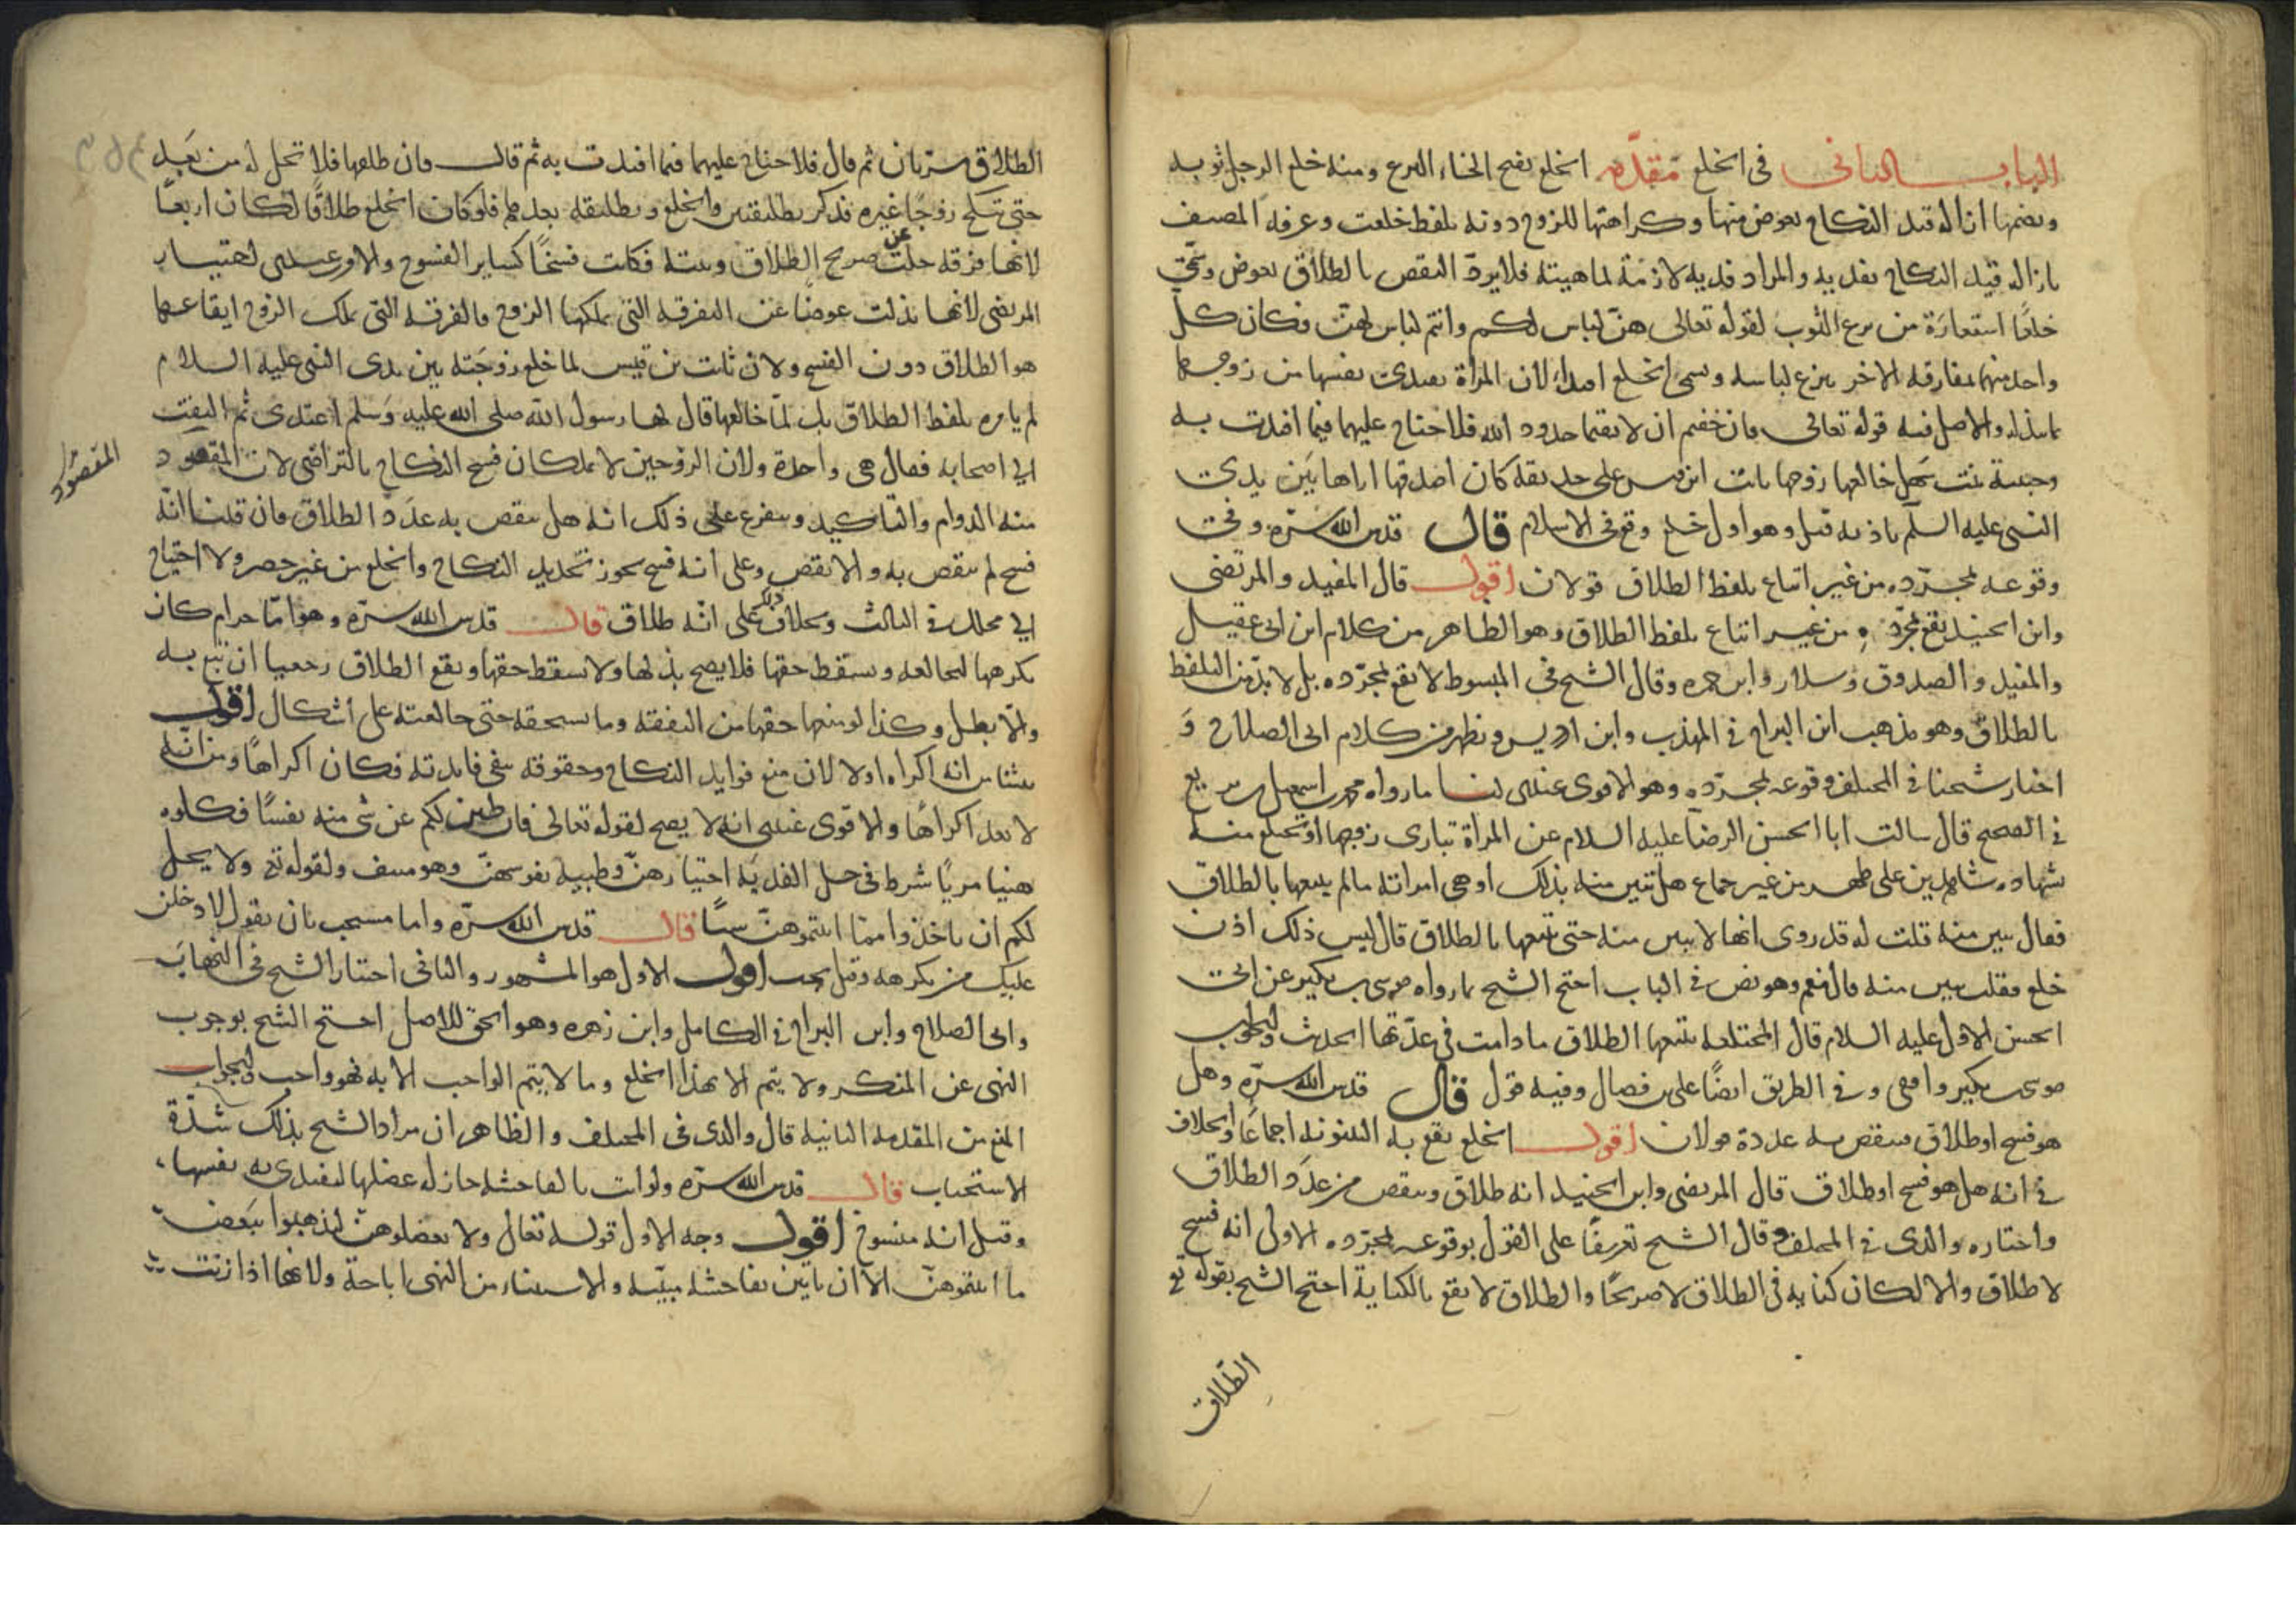 الباب الثانى فى الخلع مقدّمه الخلع بفتح الخاء النزع ومنه خلع الرجل ثوبه
وبضمها ازاله قيد النكاح بعوض منها وكراهتها للزوج دونه بلفظ خلعت وعرفه المصنف
بازاله قيد النكاح بفديه والمراد فديه لازمة لماهيته فلا يرد النقض بالطلاق بعوض وسمّى
خلعًا استعارَة من نزع الثوب لقوله تعالى هنّ لباس لكم وانتم لباس لهنّ فكان كل
واحد منهما بمفارقه الاخر ينزع لباسه وسمى الخلع افتداء لان المرأة تفتدى نفسها من زوجها
بما تبذله والاصل فيه قوله تعالى فان خفتم ان لا يقيما حدود الله فلا جناح عليهما فيما افتدت به
وحبيبة بنت سهل خالعها زوجها ثابت ابن قيس على حديقه كان اصدقها اياها بَين يدى
النبى عليه السلم باذنه قيل وهو اول خلع وقع فى الاسلام قال قدس الله سرّه وفى
وقوعه بمجرّده من غير اتباع بلفظ الطلاق قولان اقول قال المفيد والمرتضى
وابن الجنيد يقع بمجرّده من غير اتباع بلفظ الطلاق وهو الظاهر من كلام ابن ابى عقيل
والمفيد والصدوق وسلار وابن حمزه وقال الشيخ فى المبسوط لا يقع بمجرّده بل لا بدّ من التلفظ
بالطلاق وهو مذهب ابن البراج فى المهذب وابن ادريس ويظهر من كلام ابى الصلاح وَ
اختار شيخنا فى المختلف وقوعه بمجرّده وهو الاقوى عندى لنا ما رواه محمد بن اسمعيل بن بزيع
فى الصحيح قال سالت ابا الحسن الرضا عليه السلام عن المرأة تبارى زوجها او تختلع منه
بشهاده شاهدين على طهر من غير جماع هل تبين منه بذلك او هى امراته ما لم يتبعها بالطلاق
فقال تبين منه قلت له قد روى انها لا تبين منه حتى يتبعها بالطلاق قال ليس ذلك اذن
خلع فقلت تبين منه قال نعم وهو نص فى الباب احتج الشيخ بما رواه موسى بن بكير عن ابى
الحسن الاول عليه السلام قال المختلعه يتبعها الطلاق ما دامت فى عدّتها الحديث والجواب
موسى بن بكير واقفى وفى الطريق ايضًا على بن فضال وفيه قول قال قدس الله سرّه وهل
هو فسخ او طلاق فينقص به عدده قولان اقول الخلع يقع به البينونه اجماعًا والخلاف
فى انه هل هو فسخ او طلاق قال المرتضى وابن الجنيد انه طلاق وينقص من عدَد الطلاق
واختاره والدى فى المختلف وقال الشيخ تفريعًا على القول بوقوعه بمجرّده الاولى انه فسخ
لا طلاق والا لكان كنايه فى الطلاق لا صريحًا والطلاق لا يقع بالكناية احتج الشيخ بقوله تع
الطلاق
الطلاق مرتان ثم قال فلا جناح عليهما فيما افتدت به ثم قال فان طلقها فلا تحل له من بَعد
حتى تنكح زوجًا غيره فذكر تطليقتين والخلع وتطليقه بعدهما فلو كان الخلع طلاقًا لكان اربعًا
لانها فرقه خلت عن صريح الطلاق ونيته فكانت فسخًا كساير الفسوخ والاقوى عندى اختيار
المرتضى لانها بذلت عوضًا عن الفرقه التى يملكها الزوج والفرقه التى يملك الزوج ايقاعها
هو الطلاق دون الفسخ ولان ثابت بن قيس لما خلع زوجَته بين يدى النبى عليه السلام
لم يامره بلفظ الطلاق بل لمّا خالعها قال لها رسول الله صلى الله عليه وَسلم اعتدى ثم التفت
الى اصحابه فقال هى واحدة ولان الزوجين لا يملكان فسخ النكاح بالتراضى لان المقصود
المقصود
منه الدوام والتاكيد ويتفرع على ذلك انه هل ينقص به عدَد الطلاق فان قلنا انّه
فسخ لم ينقص به والا نقص وعلى انه فسخ يجوز تجديد النكاح والخلع من غير حصر ولا احتياج
الى محلل فى الثالث وبخلاف ذلك على انّه طلاق قال قدس الله سرّه وهو امّا حرام كان
يكرهها لتخالعه ويسقط حقها فلا يصح بذلها ولا يسقط حقها ويقع الطلاق رجعيا ان تبع به
والّا بطل وكذا لو منعها حقها من النفقه وما تستحقه حتى خالعته على اشكال اقول
ينشا من انه اكراه اولا لان منع فوايد النكاح وحقوقه ينفى فايدته فكان اكراهًا ومن انّه
لا يعد اكراهًا والاقوى عندى انه لا يصح لقوله تعالى فان طبن لكم عن شى منه نفسًا فكلوه
هنيا مريًا شرط فى حل الفديَه اختيارهنّ وطيبة نفوسهنّ وهو منتف ولقوله تع ولا يحل
لكم ان تاخذوا ممّا اتيتموهنّ شيئًا قال قدس الله سرّه واما مستحب بان تقول لادخلن
عليك من تكرهه وقيل يجب اقول الاول هو المشهور والثانى اختيار الشيخ فى النهايَه
وابى الصلاح وابن البراج فى الكامل وابن زهره وهو الحق للاصل احتج الشيخ بوجوب
النهى عن المنكر ولا يتم الا بهذا الخلع وما لا يتم الواجب الا به فهو واجب والجواب
المنع من المقدمه الثانيه قال والدى فى المختلف والظاهر ان مراد الشيخ بذلك شدّة
الاستحباب قال قدس الله سرّه ولو اتت بالفاحشه جاز له عضلها لتفتدى به نفسها،
وقيل انه منسوخ اقول وجه الاول قوله تعالى ولا تعضلوهنّ لتذهبوا ببَعض
ما اتيتموهنّ الّا ان ياتين بفاحشه مبيّنه والاستثناء من النهى اباحة ولانها اذا زنت